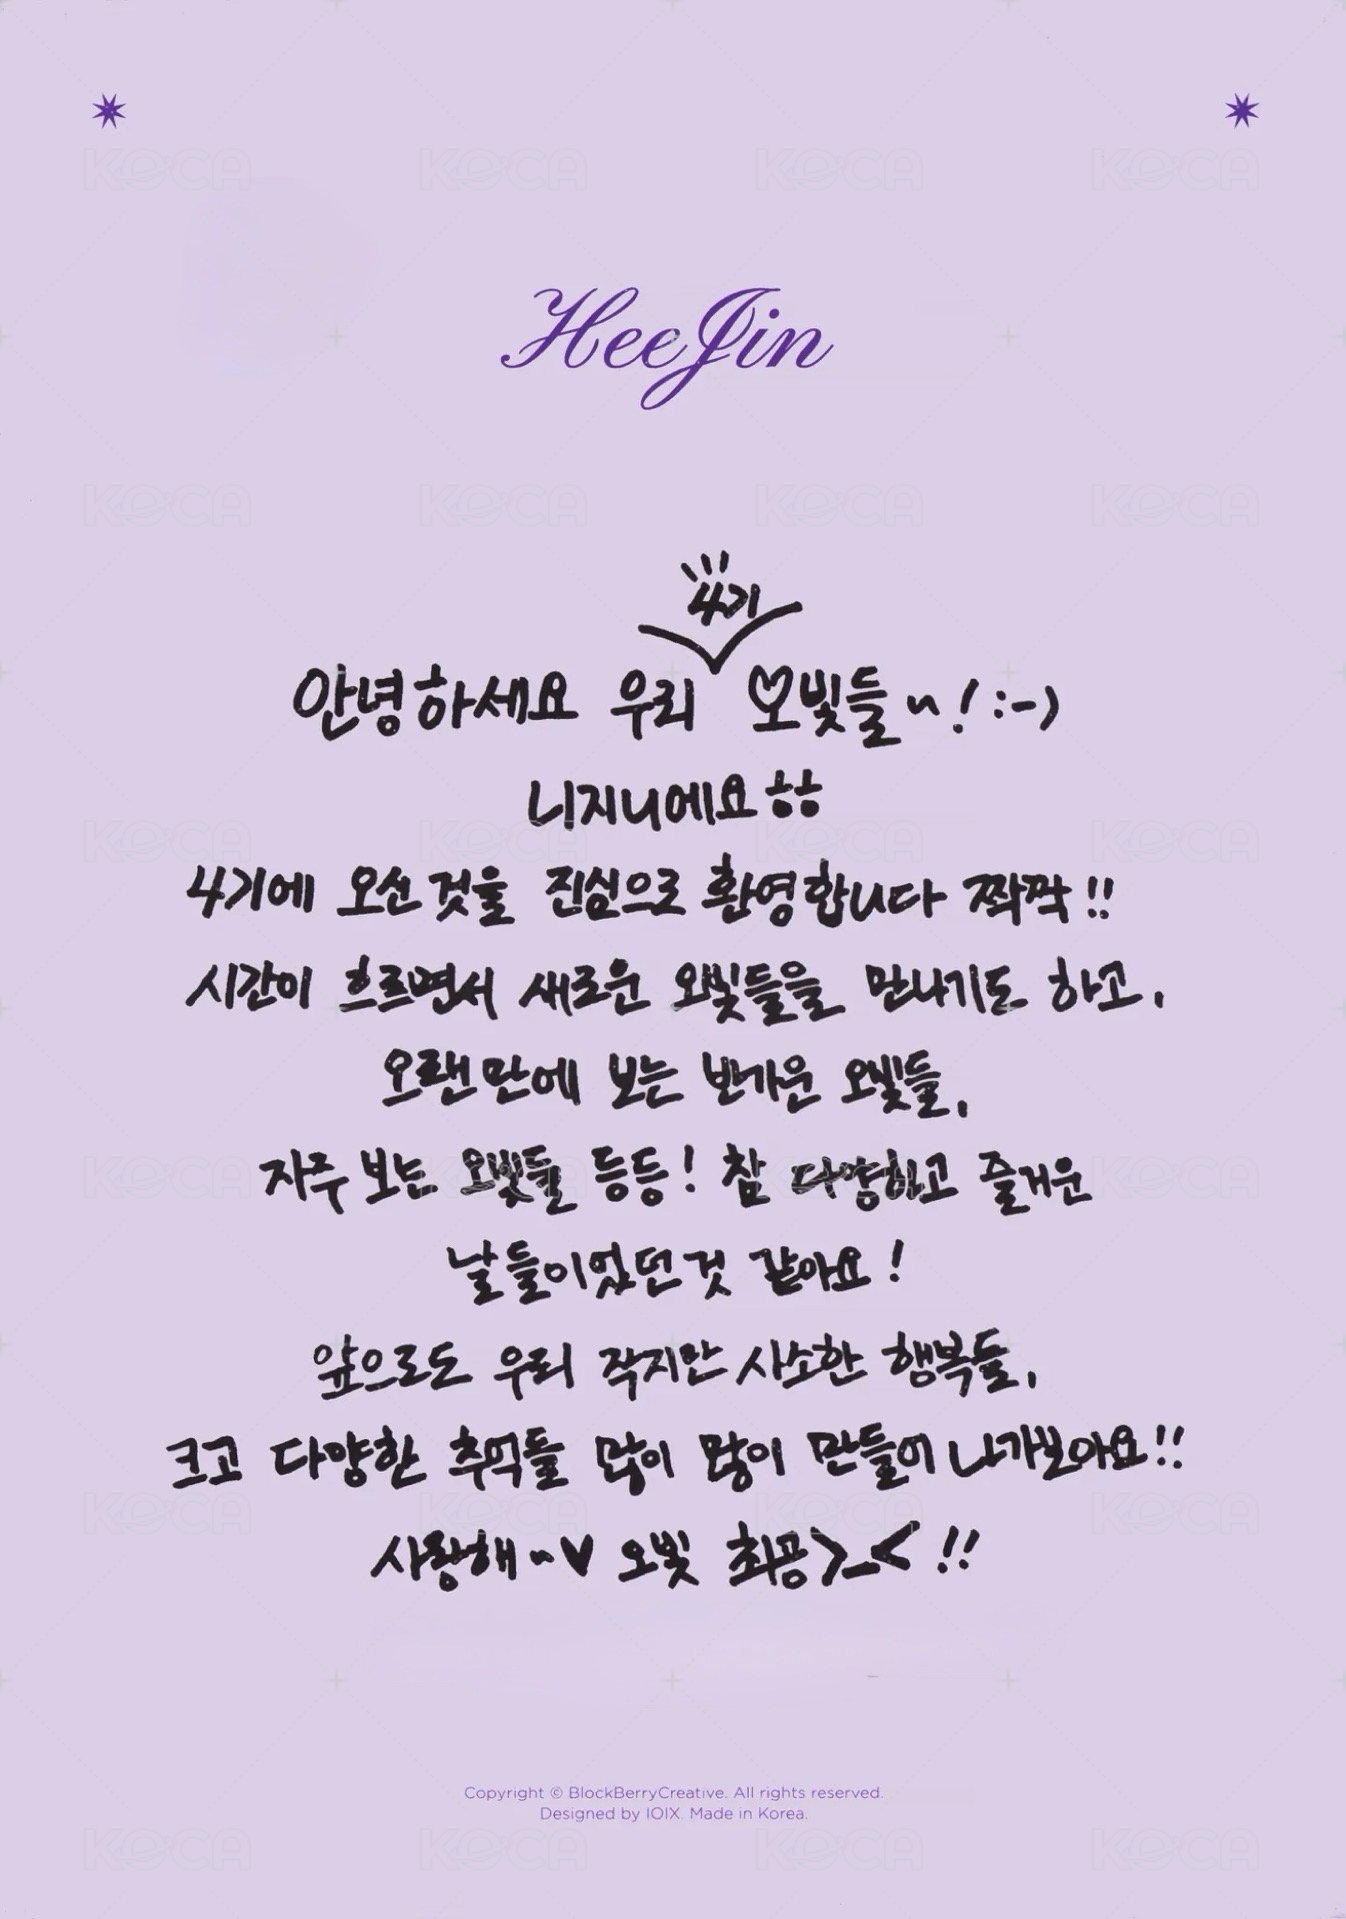 HeeJin
4기
안녕하세요 우리 오빛들~! :-)
니지니에요ㅎㅎ
4기에 오신것을 진심으로 환영합니다 짝짝!!
시간이 흐르면서 새로운 오빛들을 만나기도 하고,
오랜만에 보는 반가운 오빛들,
자주 보는 오빛들 등등! 참 다양하고 즐거운
날들이었던것 같아요!
앞으로도 우리 작지만 사소한 행복들,
크고 다양한 추억들 많이 많이 만들어 나가보아요!!
사랑해~♥ 오빛 최공>_<!!
Copyright © BlockBerryCreative. All rights reserved.
Designed by IOIX. Made in Korea.
KOCA